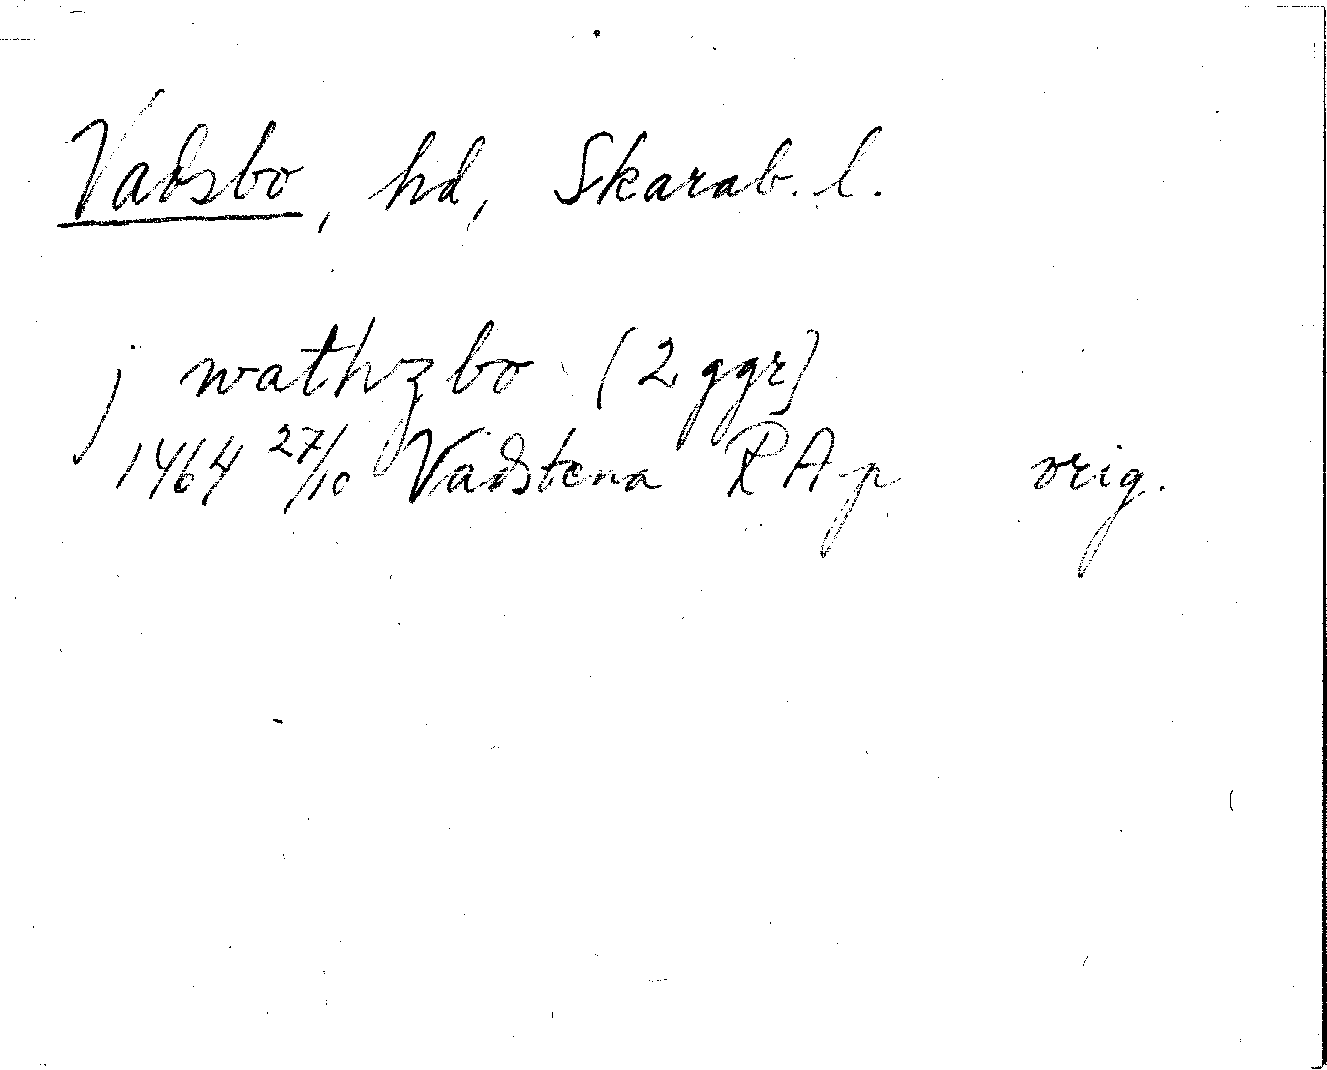 Vadsbo, hd, Skarab. l.
j wathzbo (2 ggr)
1464 27/10 Vadstena RAp orig.